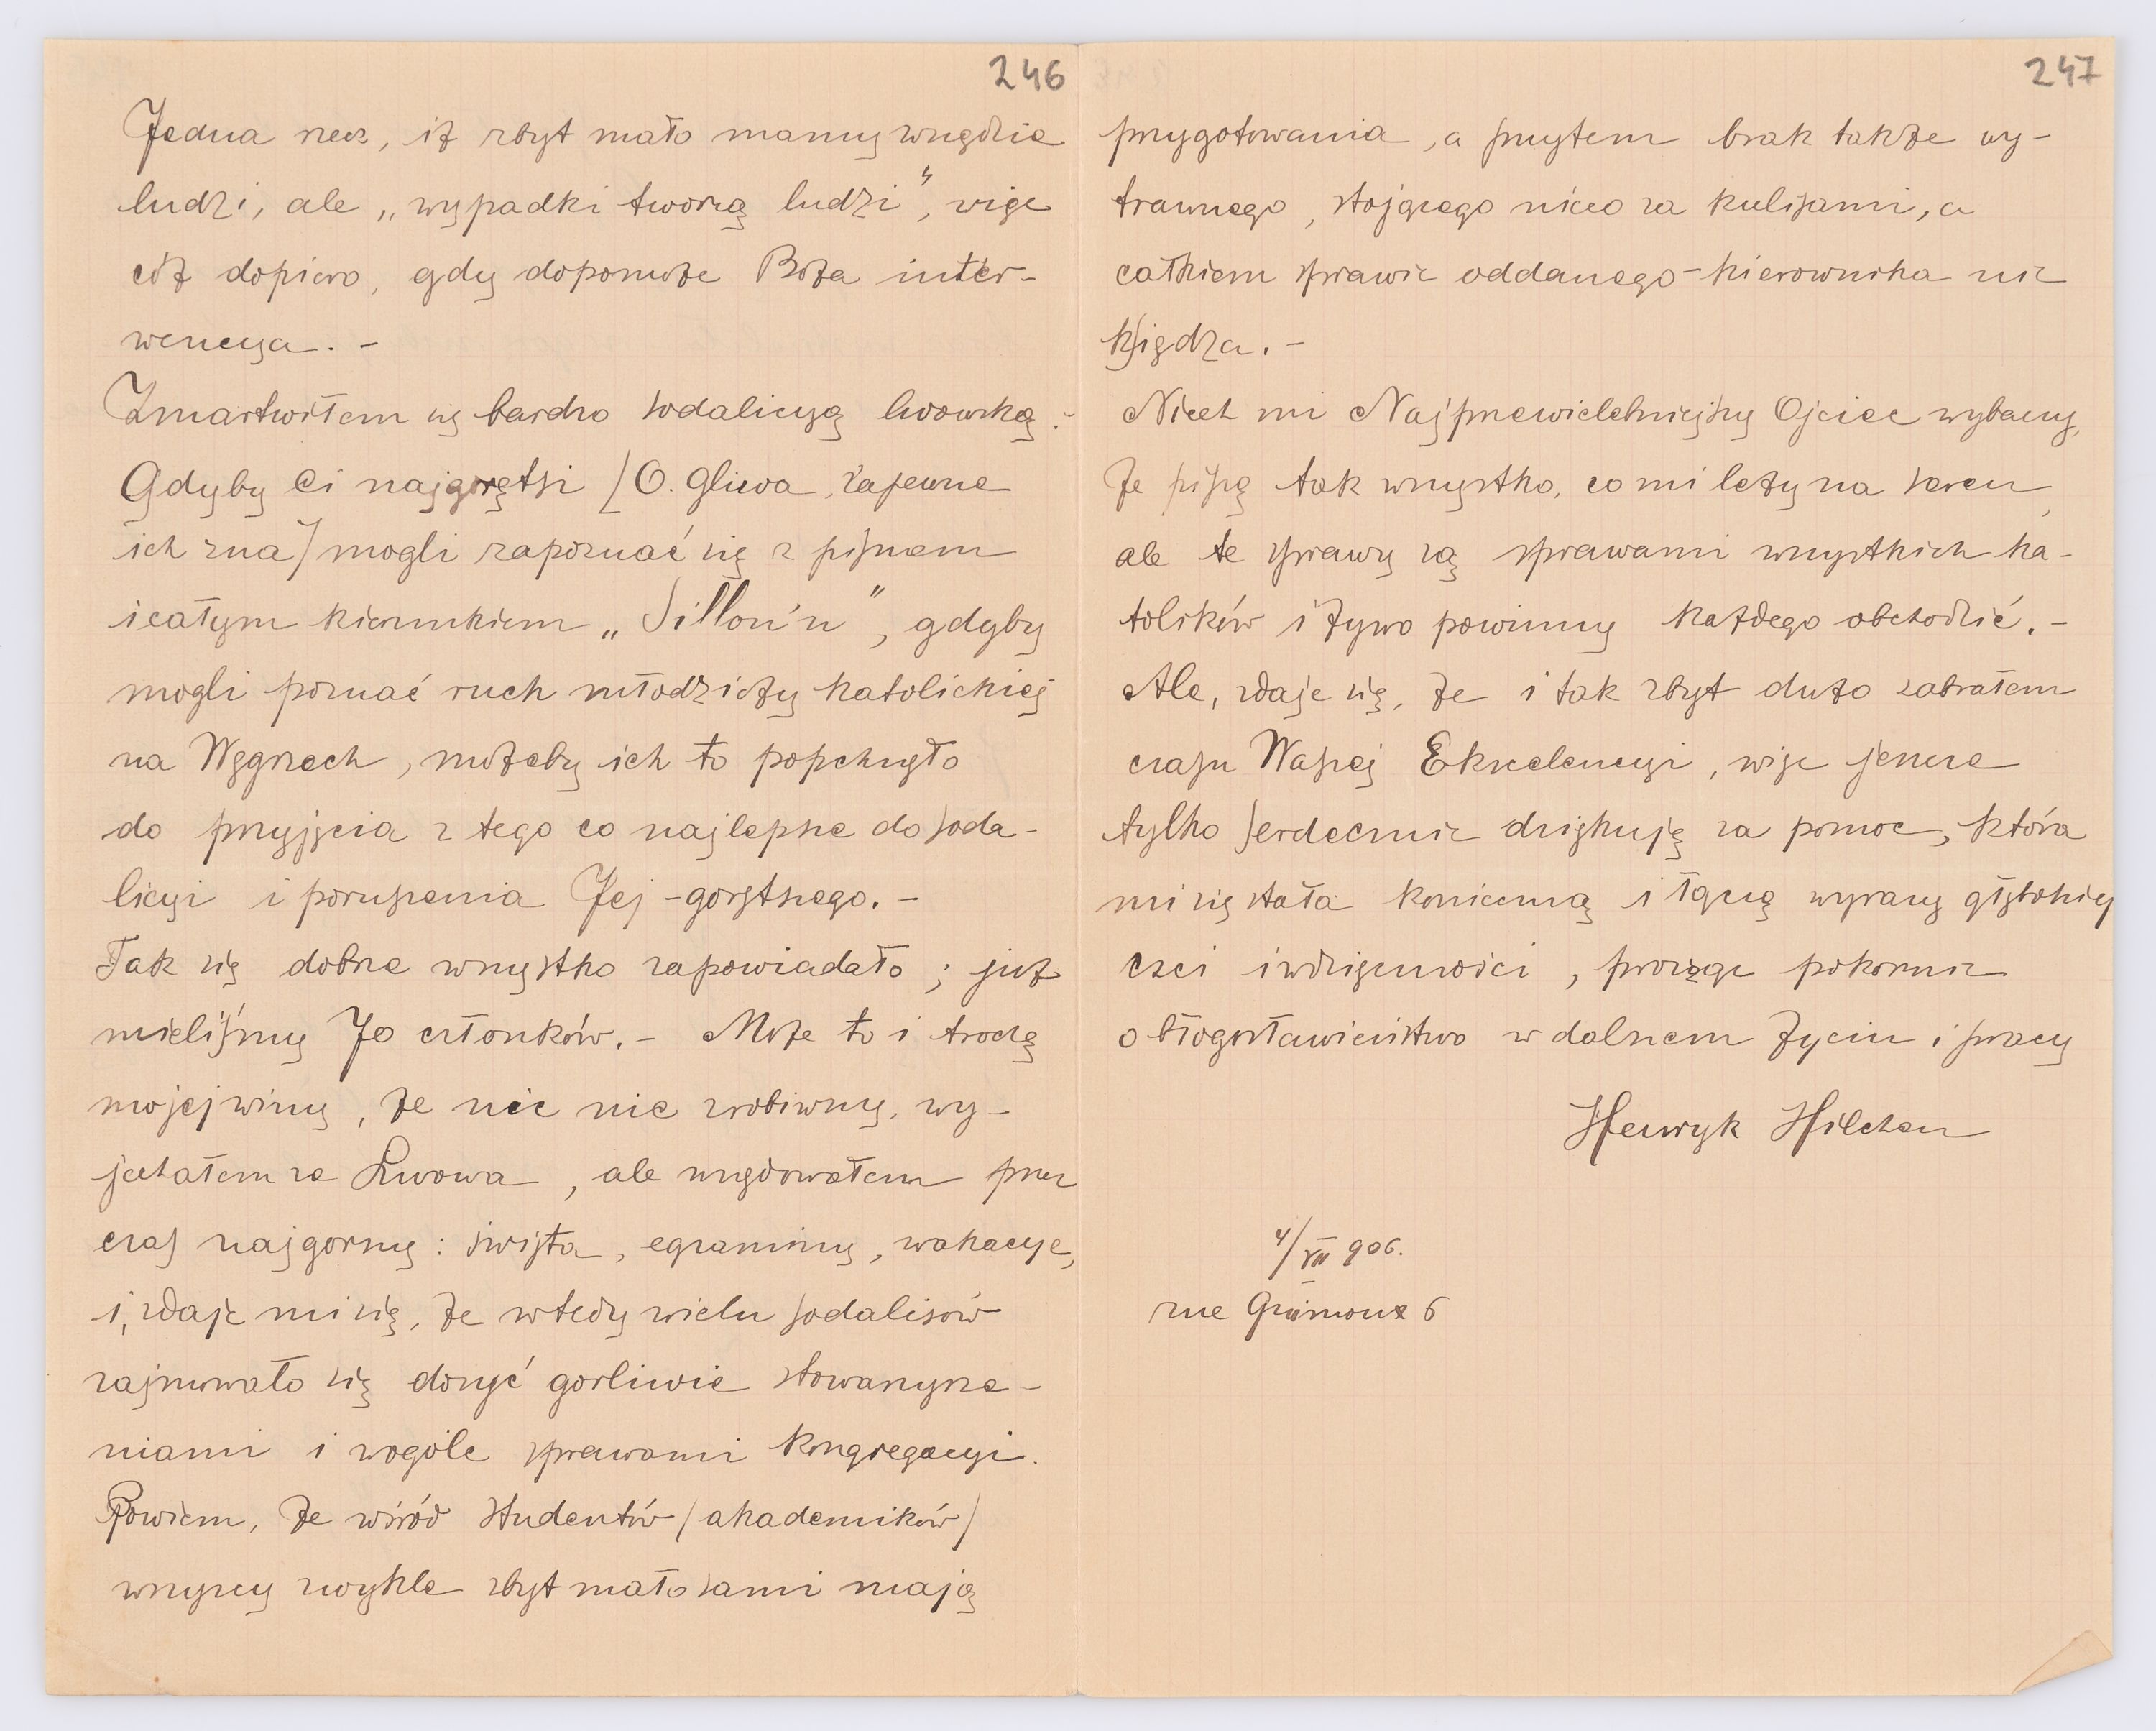 246
Jedna rzecz, iż zbyt mało mamy wszędzie
ludzi, ale „wypadki tworzą ludzi”, więc
cóż dopiero, gdy dopomoże Boża inter-
wencya. -
Zmartwiłem się bardzo sodalicyą lwowską:
Gdyby Ci najgorętsi /O. Gliwa, zapewne
ich zna/ mogli zapoznać się z pismem
i całym kierunkiem „Sillon'u”, gdyby
mogli poznać ruch młodzieży katolickiej
na Węgrzech, możeby ich to popchnęło
do przyjęcia z tego co najlepsze do soda-
licyi i poruszenia Jej - gorętszego. -
Tak się dobrze wszystko zapowiadało; już
mieliśmy 70 członków. - Może to i trochę
mojej winy, że nic nie zrobiwszy, wy-
jechałem ze Lwowa, ale urzędowałem przez
czas najgorszy: święta, egzaminy, wakacye,
i, zdaje mi się, że wtedy wielu sodalisów
zajmowało się dosyć gorliwie stowarzysze-
niami i wogóle sprawami Kongregacyi.
Powiem, że wśród studentów /akademików/
wszyscy zwykle zbyt mało sami mają
247
przygotowania, a przytem brak także wy-
trawnego, stojącego nieco za kulisami, a
całkiem sprawie oddanego - kierownika nie
księdza. -
Niech mi Najprzewielebniejszy Ojciec wybaczy,
że piszę tak wszystko, co mi leży na sercu,
ale te sprawy są sprawami wszystkich ka-
tolików i żywo powinny każdego obchodzić. -
Ale, zdaje się, że i tak zbyt dużo zabrałem
czasu Waszej Ekscelencyi, więc jeszcze
tylko serdecznie dziękuję za pomoc, która
mi się stała konieczną i łączę wyrazy głębokiej
czci i wdzięczności, prosząc pokornie
o błogosławieństwo w dalszem życiu i pracy
Henryk Hilchen
4/VII 906.
rue Grimoux 6